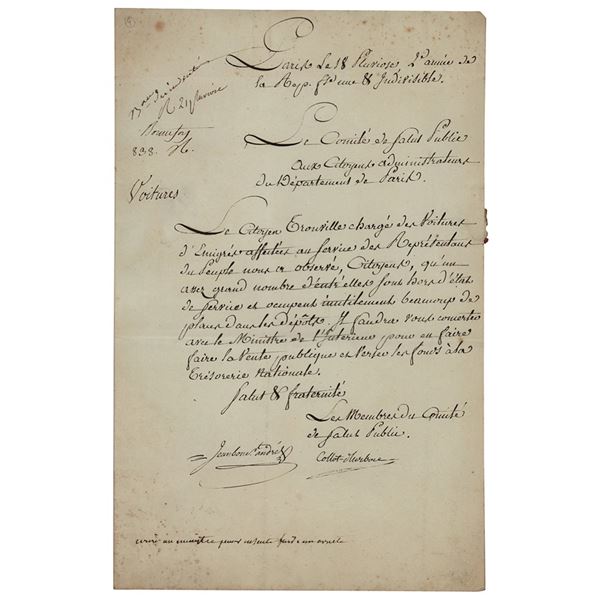 Paris Le 18 Pluviose, 2.e année de
la Rep. f.se une & Indivisible.
R 21 Pluviose
838.
Le Comité de Salut Public
aux Citoyens administrateurs
du Département de Paris.
Voitures
Le Citoyen Trouville chargé des Voitures
d'Emigrés affectées au Service des Représentans
du Peuple nous a observé, Citoyens, qu'un
assez grand nombre d'entr'elles sont hors d'état
de service et occupent inutilement beaucoup de
place dans les dépôts. Il faudra vous concerter
avec le Ministre de l'Interieur, pour en faire
faire la Vente publique et verser les fonds à la
Trésorerie Nationale.
Salut & fraternité
Les Membres du Comité
de Salut Public.
Jeanbon S.t andré
Collot d'herbois
au ministre pour